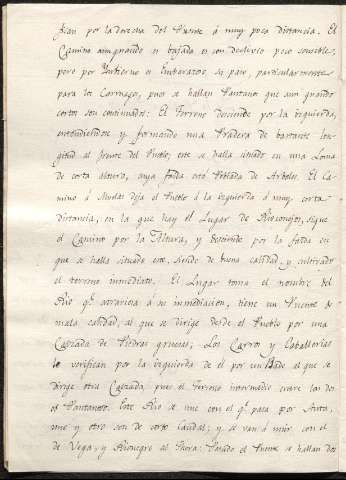 jitan por la derecha del Puente á muy poca distancia. El
Camino aunquando es bajada es con declivio poco sensible,
pero por Ynbierno es Embarazoso, su paso, particularmente
para los Carruages, pues se hallan Pantanos que aun quando
cortos son continuados: El Terreno desciende por la izquierda,
extendiendose y formando una Pradera de bastante lon-
gitud al frente del Pueblo, este se halla situado en una Loma
de corta altura, cuya falda esta Poblada de Arboles. El Ca-
mino á Mombuey deja el Pueblo á la Izquierda á muy corta
distancia, en la que hay el Lugar de Rioconejos, sigue
el Camino por la Altura, y desciende por la falda en
que se halla situado este, siendo de buena calidad, y cultivado
el terreno inmediato. El Lugar toma el nombre del
Rio qᵉ atraviesa á su inmediacion, tiene un Puente de
mala calidad, al que se dirige desde el Pueblo por una
Calzada de Piedras gruesas; Los Carros y Caballerias
lo verifican por la izquierda de el por un Bado al que se
dirige otra Calzada, pues el Terreno intermedio entre los dos
es Pantanoso. Este Rio se une con el qᵉ pasa por
uno y otro son de corto Caudal; y se van á unir con el
de Vega, y Rionegro al Thera: Pasado el Puente se hallan dos